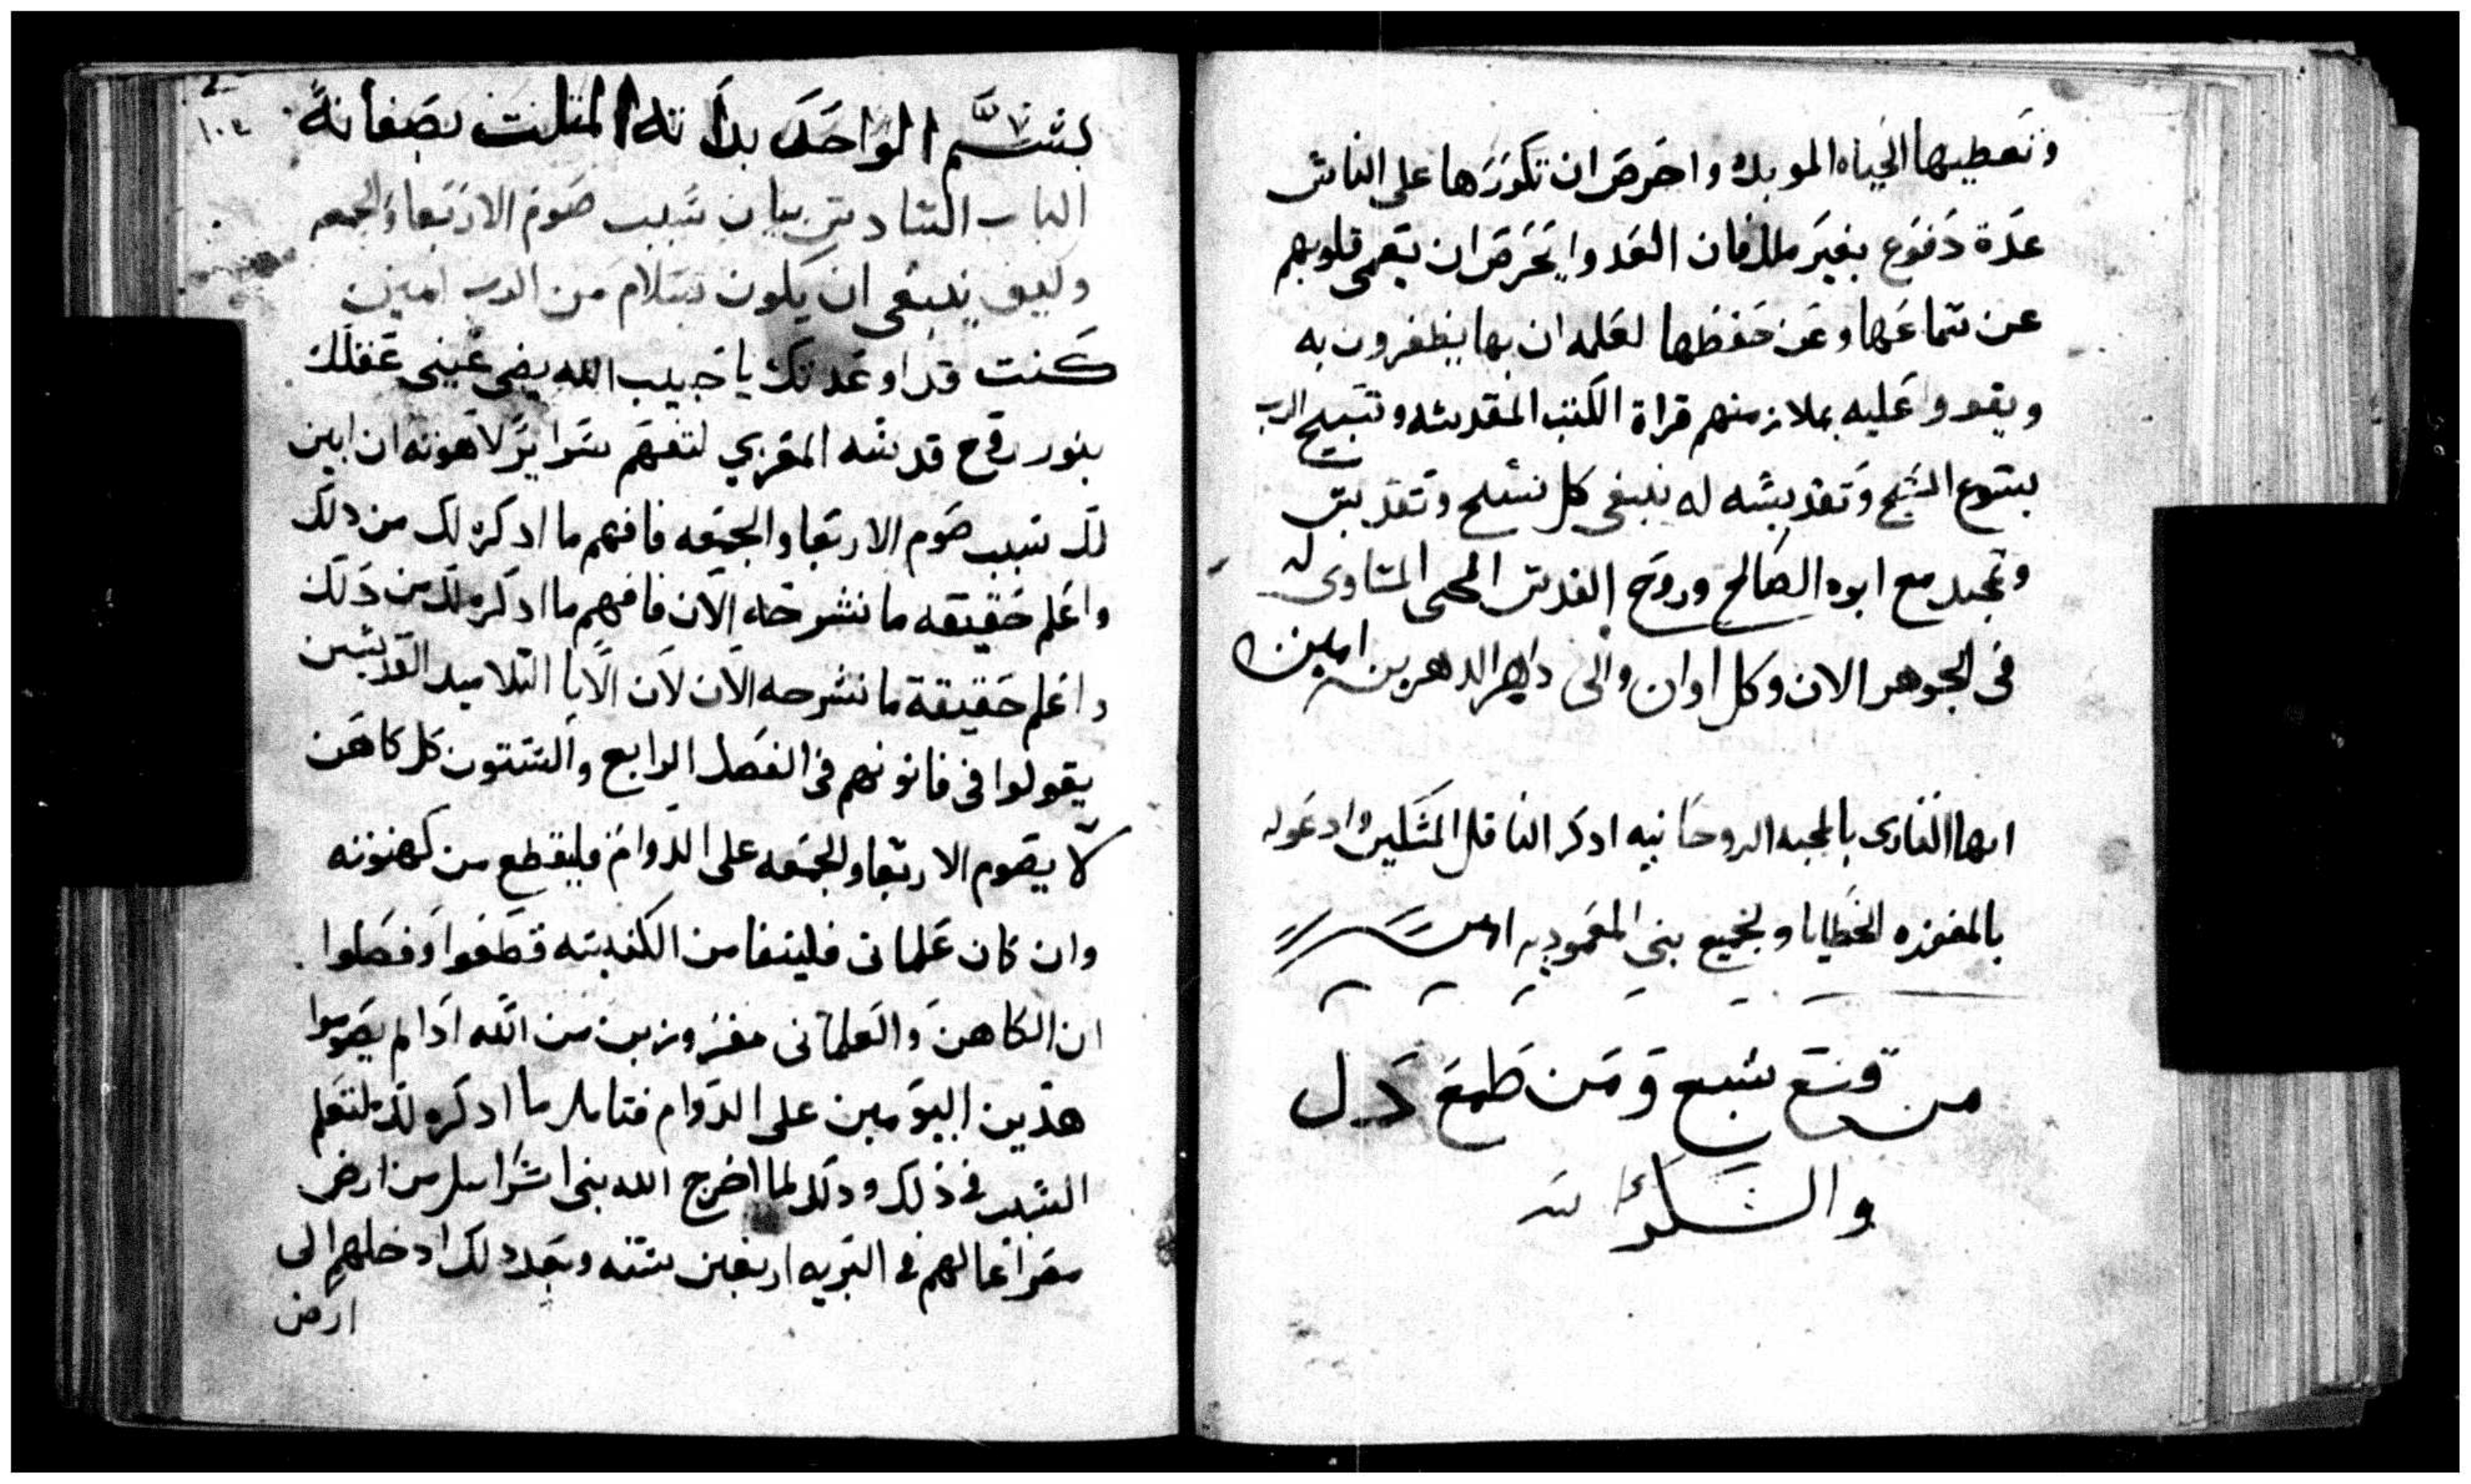 وتعطيها الحياه الموبده واحرص ان تكورزها على الناس
عدة دفوع بغير ملل فان العدوا يحرص ان يعمى قلوبهم
عن سماعها وعن حفظها لعلمه ان بها يظفرون به
ويقووا عليه بملازمتهم قراة الكتب المقدسه وتسبيح الرب
يسوع المسيح وتقديسه له ينبغى كل تسبيح وتقديس
وتمجيد مع ابوه الصالح وروح القدس المحى المساوى له
فى الجوهر الان وكل اوان والى داهر الداهرين امين
ايها القارى بالمحبه الروحانيه ادكر الناقل المسكين وادعوله
بالمغفره الخطايا ولجميع بنى المعموديه امين
من قنع شبع ومن طمع دل
والسلام
١٠٤
بسم الواحد بداته المتلت بصفاته
الباب السادس بيان سبب صوم الاربعا والجمعه
وكيف ينبغى ان يكون بسلام من الرب امين
كنت قد اوعدتك يا حبيب الله يضى عينى عقلك
بنور روح قدسه المعزي لتفهم سراير لاهوته ان ابين
لك سبب صوم الاربعا والجمعه فافهم ما ادكره لك من دلك
واعلم حقيقه ما نشرحه الان فافهم ما ادكره لك من دلك
واعلم حقيقة ما نشرحه الان لان الابا التلاميد القديسين
يقولوا فى قانونهم فى الفصل الرابع والستون كل كاهن
لا يصوم الاربعا والجمعه على الدوام فليقطع من كهنوته
وان كان علمانى فلينفا من الكنيسه قطعوا وفصلوا
ان الكاهن والعلمانى مفروزين من الله ادا لم يصوموا
هدين اليومين على الدوام فتامل ما ادكره لك لتعلم
السبب فى ذلك ودلك لما اخرج الله بنى اسرايل من ارض
مصر اعالهم فى البريه اربعين سنه وبعد دلك ادخلهم الى
ارض